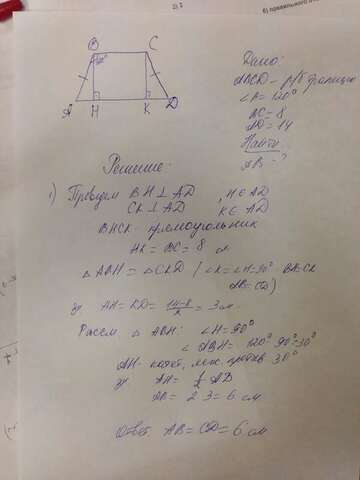 б) правильного
B
C
120°
A
H
K
D
Дано:
ABCD – р/б трапеция
∠A = 120°
BC = 8
AD = 14
Найти
AB = ?
Решение:
1) Проведем BH ⊥ AD , H ∈ AD
CK ⊥ AD K ∈ AD
BHCK - прямоугольник
HK = BC = 8 см
△ABH = △CKD ( ∠K = ∠H = 90° BH=CK
AB = CD)
⇒ AH = KD = (14-8)/2 = 3 см
Рассм. △ ABH: ∠H = 90°
∠ABH = 120° - 90° = 30°
AH - катет, леж. против 30°
⇒ AH = 1/2 AD
AB = 2·3 = 6 см
Ответ: AB = CD = 6 см